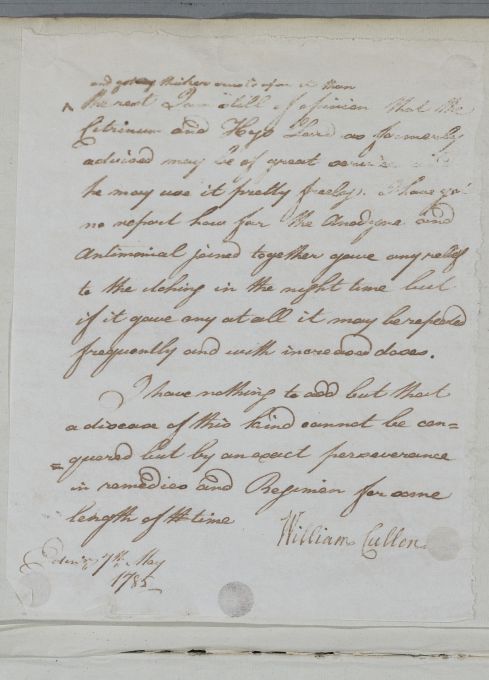 and getting thicker crusts upon it than
^ the rest I am still of opinion that the
Citrinum and Hogs Lard as formerly
advised may be of great service and
he may use it pretty freely. I have yet
no report how far the Anodyne and
Antimonial joined together gave any relief
to the itching in the night time but
if it gave any at all it may be repeated
frequently and with increased doses.
I have nothing to add but that
a disease of this kind cannot be con=
=quered but by an exact perseverance
in remedies and Regimen for some
length of time
William Cullen
Edinr. 7th. May
1785